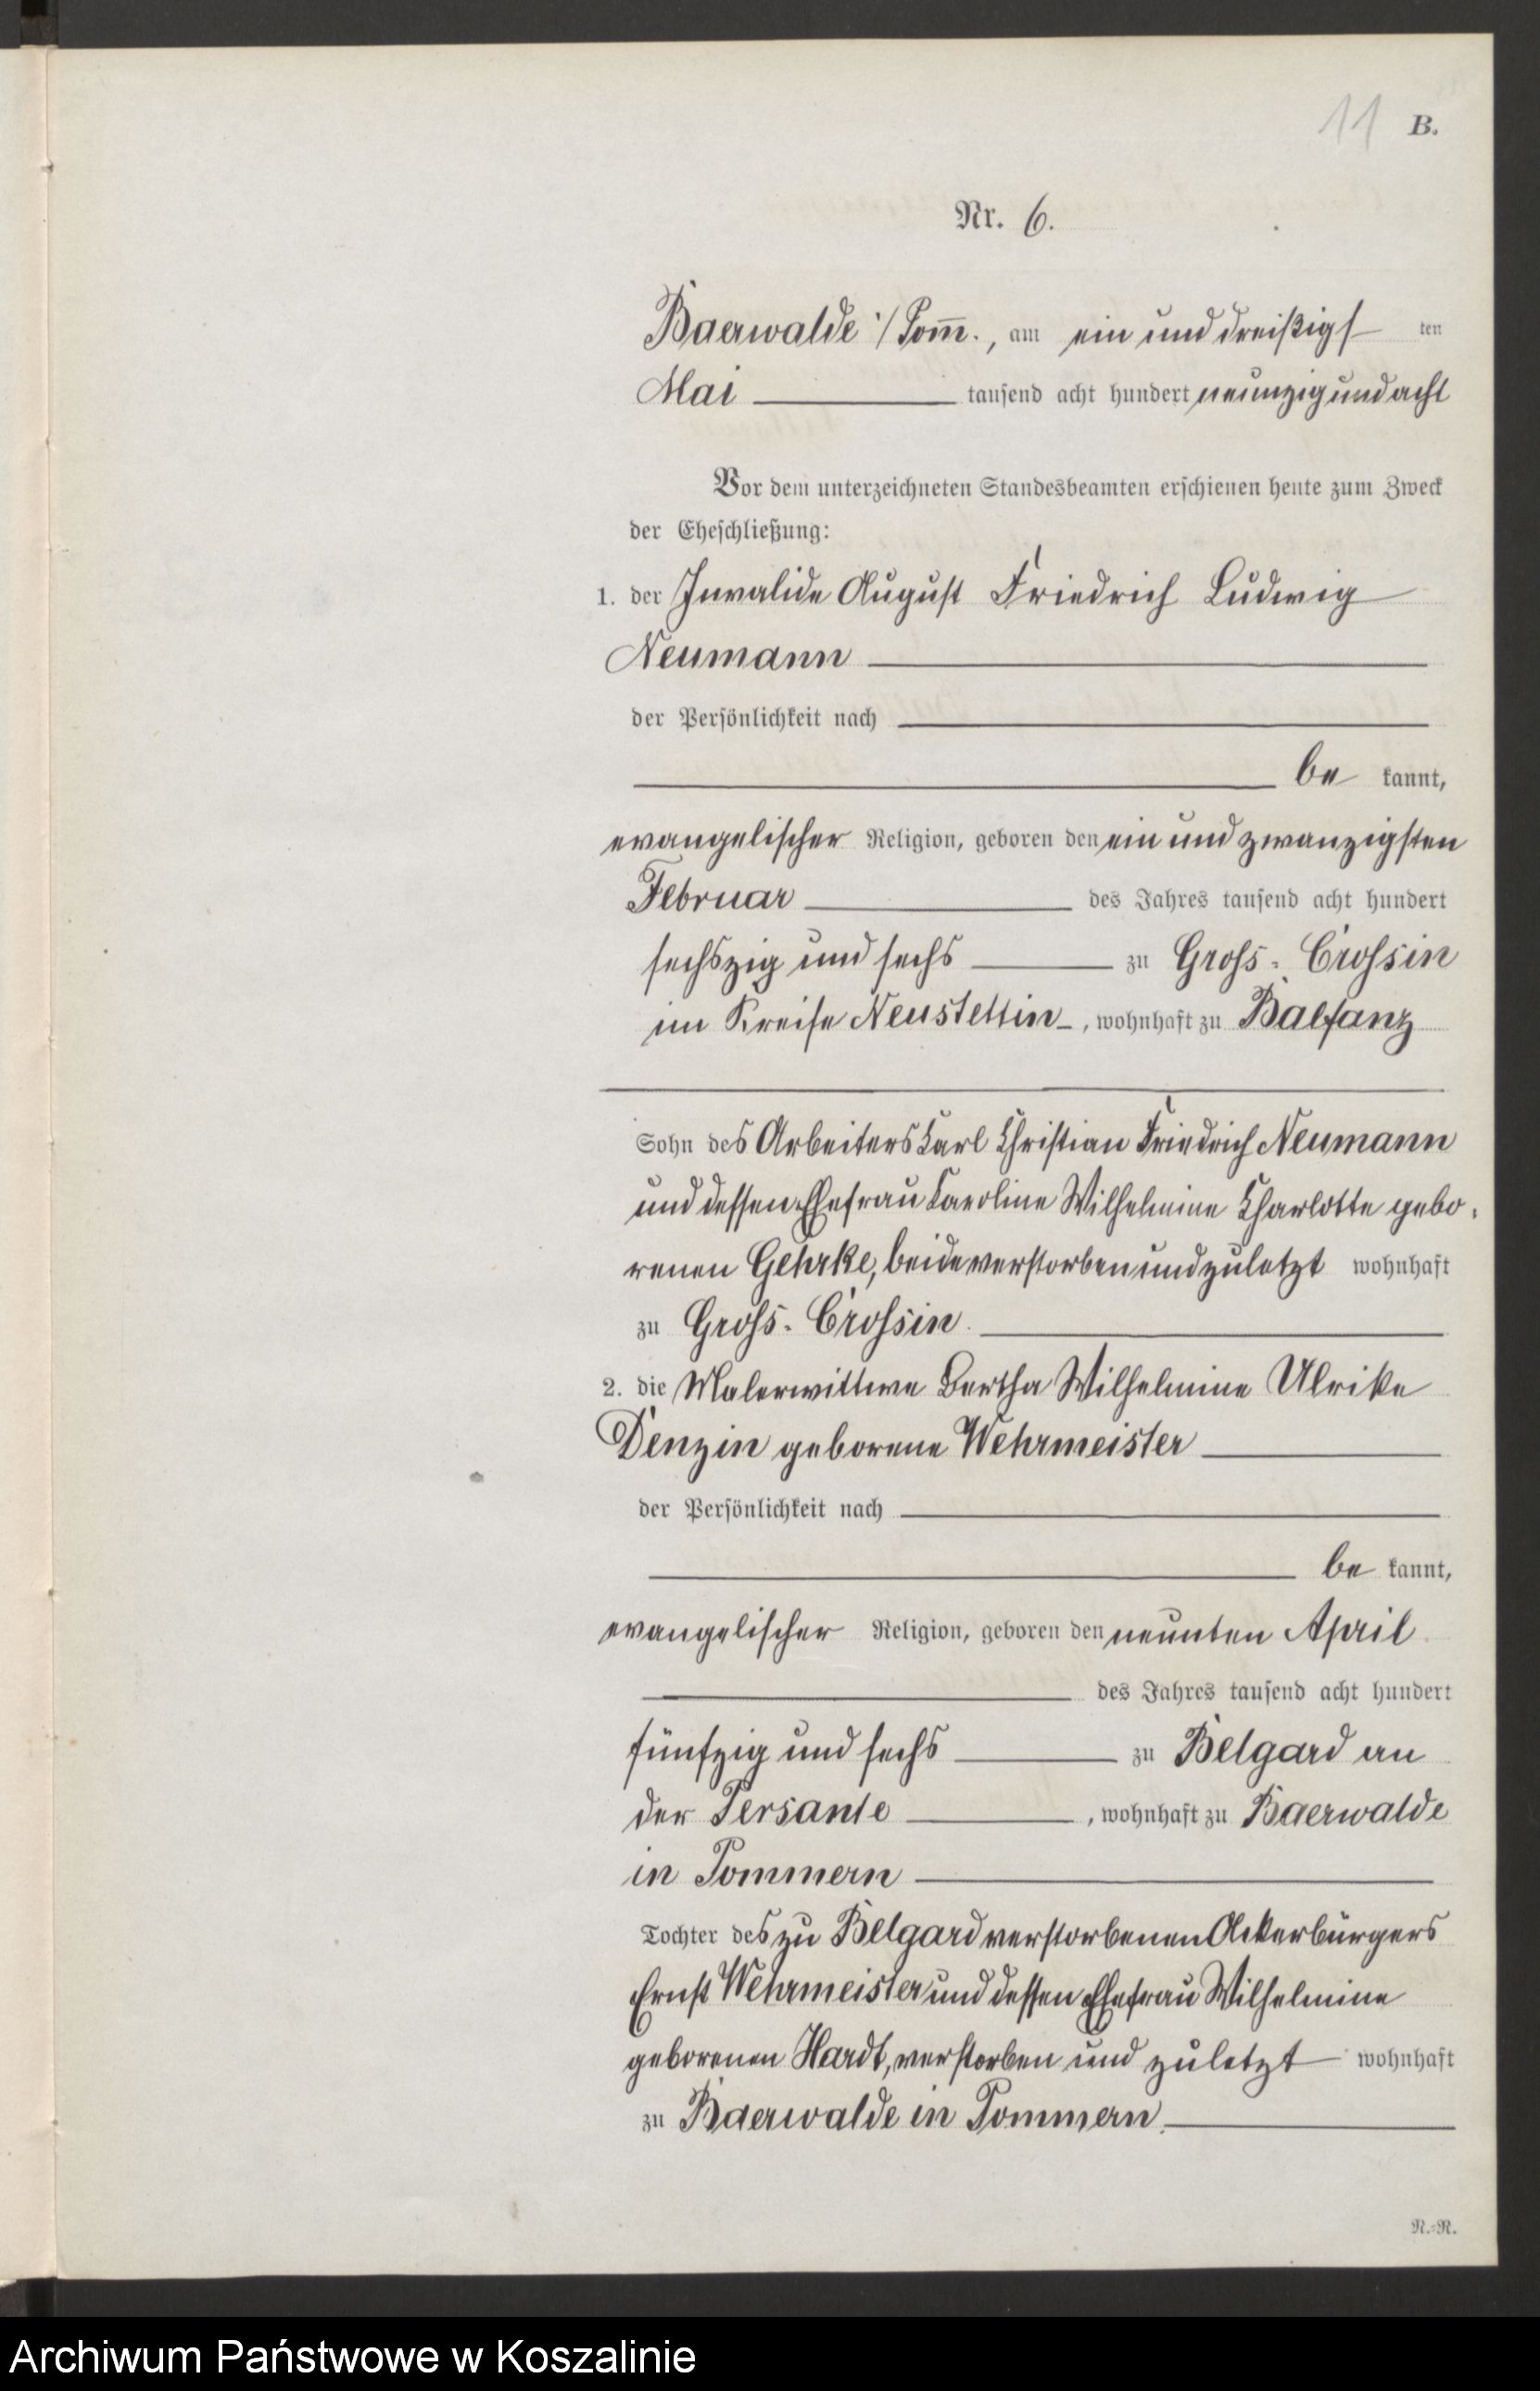 11 B.
Nr. 6.
Baerwalde i/Pom̅., am ein und dreißigs ten
Mai tausend acht hundert neunzig und acht
Vor dem unterzeichneten Standesbeamten erschienen heute zum Zweck
der Eheschließung:
1. der Invalide August Friedrich Ludwig
Neumann
der Persönlichkeit nach
be kannt,
evangelischer Religion, geboren den ein und zwanzigsten
Februar des Jahres tausend acht hundert
sechszig und sechs zu Gross-Crossin
im Kreise Neustettin, wohnhaft zu Balfanz
Sohn des Arbeiters Karl Christian Friedrich Neumann
und dessen Ehefrau Karoline Wilhelmine Charlotte gebo-
renen Gehrke, beide verstorben und zuletzt wohnhaft
zu Gross-Crossin.
2. die Malerwittwe Bertha Wilhelmine Ulrike
Denzin geborene Wehrmeister
der Persönlichkeit nach
be kannt,
evangelischer Religion, geboren den neunten April
des Jahres tausend acht hundert
fünfzig und sechs zu Belgard an
der Persante, wohnhaft zu Baerwalde
in Pommern
Tochter des zu Belgard verstorbenen Ackerbürgers
Ernst Wehrmeister und dessen Ehefrau Wilhelmine
geborenen Hardt, verstorben und zuletzt wohnhaft
zu Baerwalde in Pommern.
R.-R.
Archiwum Państwowe w Koszalinie